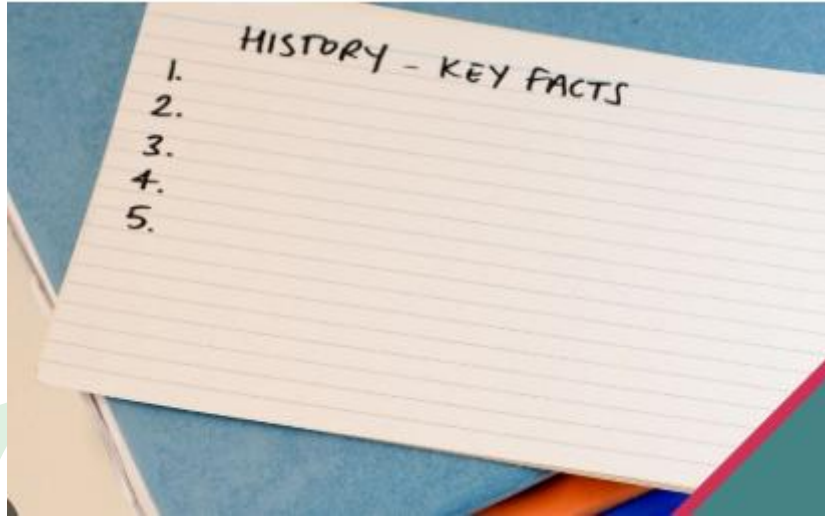 HISTORY - KEY FACTS
1.
2.
3.
4.
5.